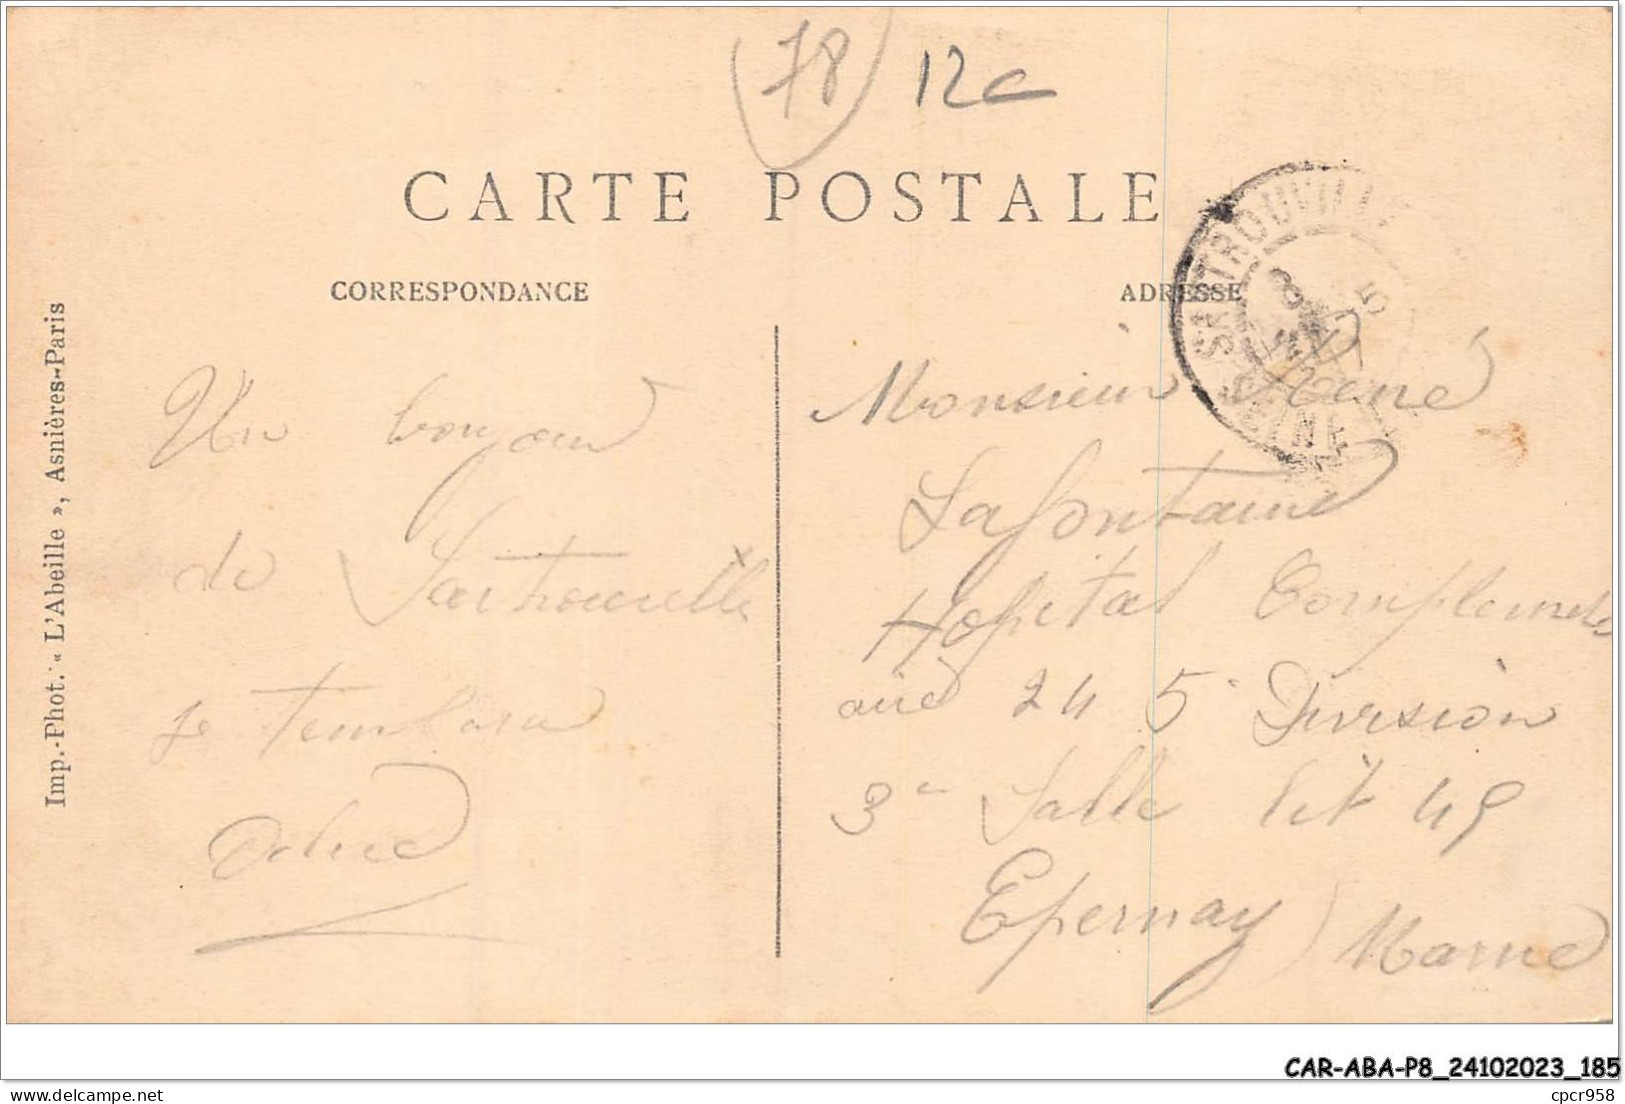 78 12c
CARTE POSTALE
CORRESPONDANCE
ADRESSE
SARTROUVILLE
8 5
SEINE
Imp.-Phot. « L'Abeille », Asnières-Paris
Un bonjour
de Sartrouville
Monsieur René
Lafontaine
Hopital Complement
24 5e Division
3e Salle lit 49
Epernay Marne
CAR-ABA-P8_24102023_185
cpcr958